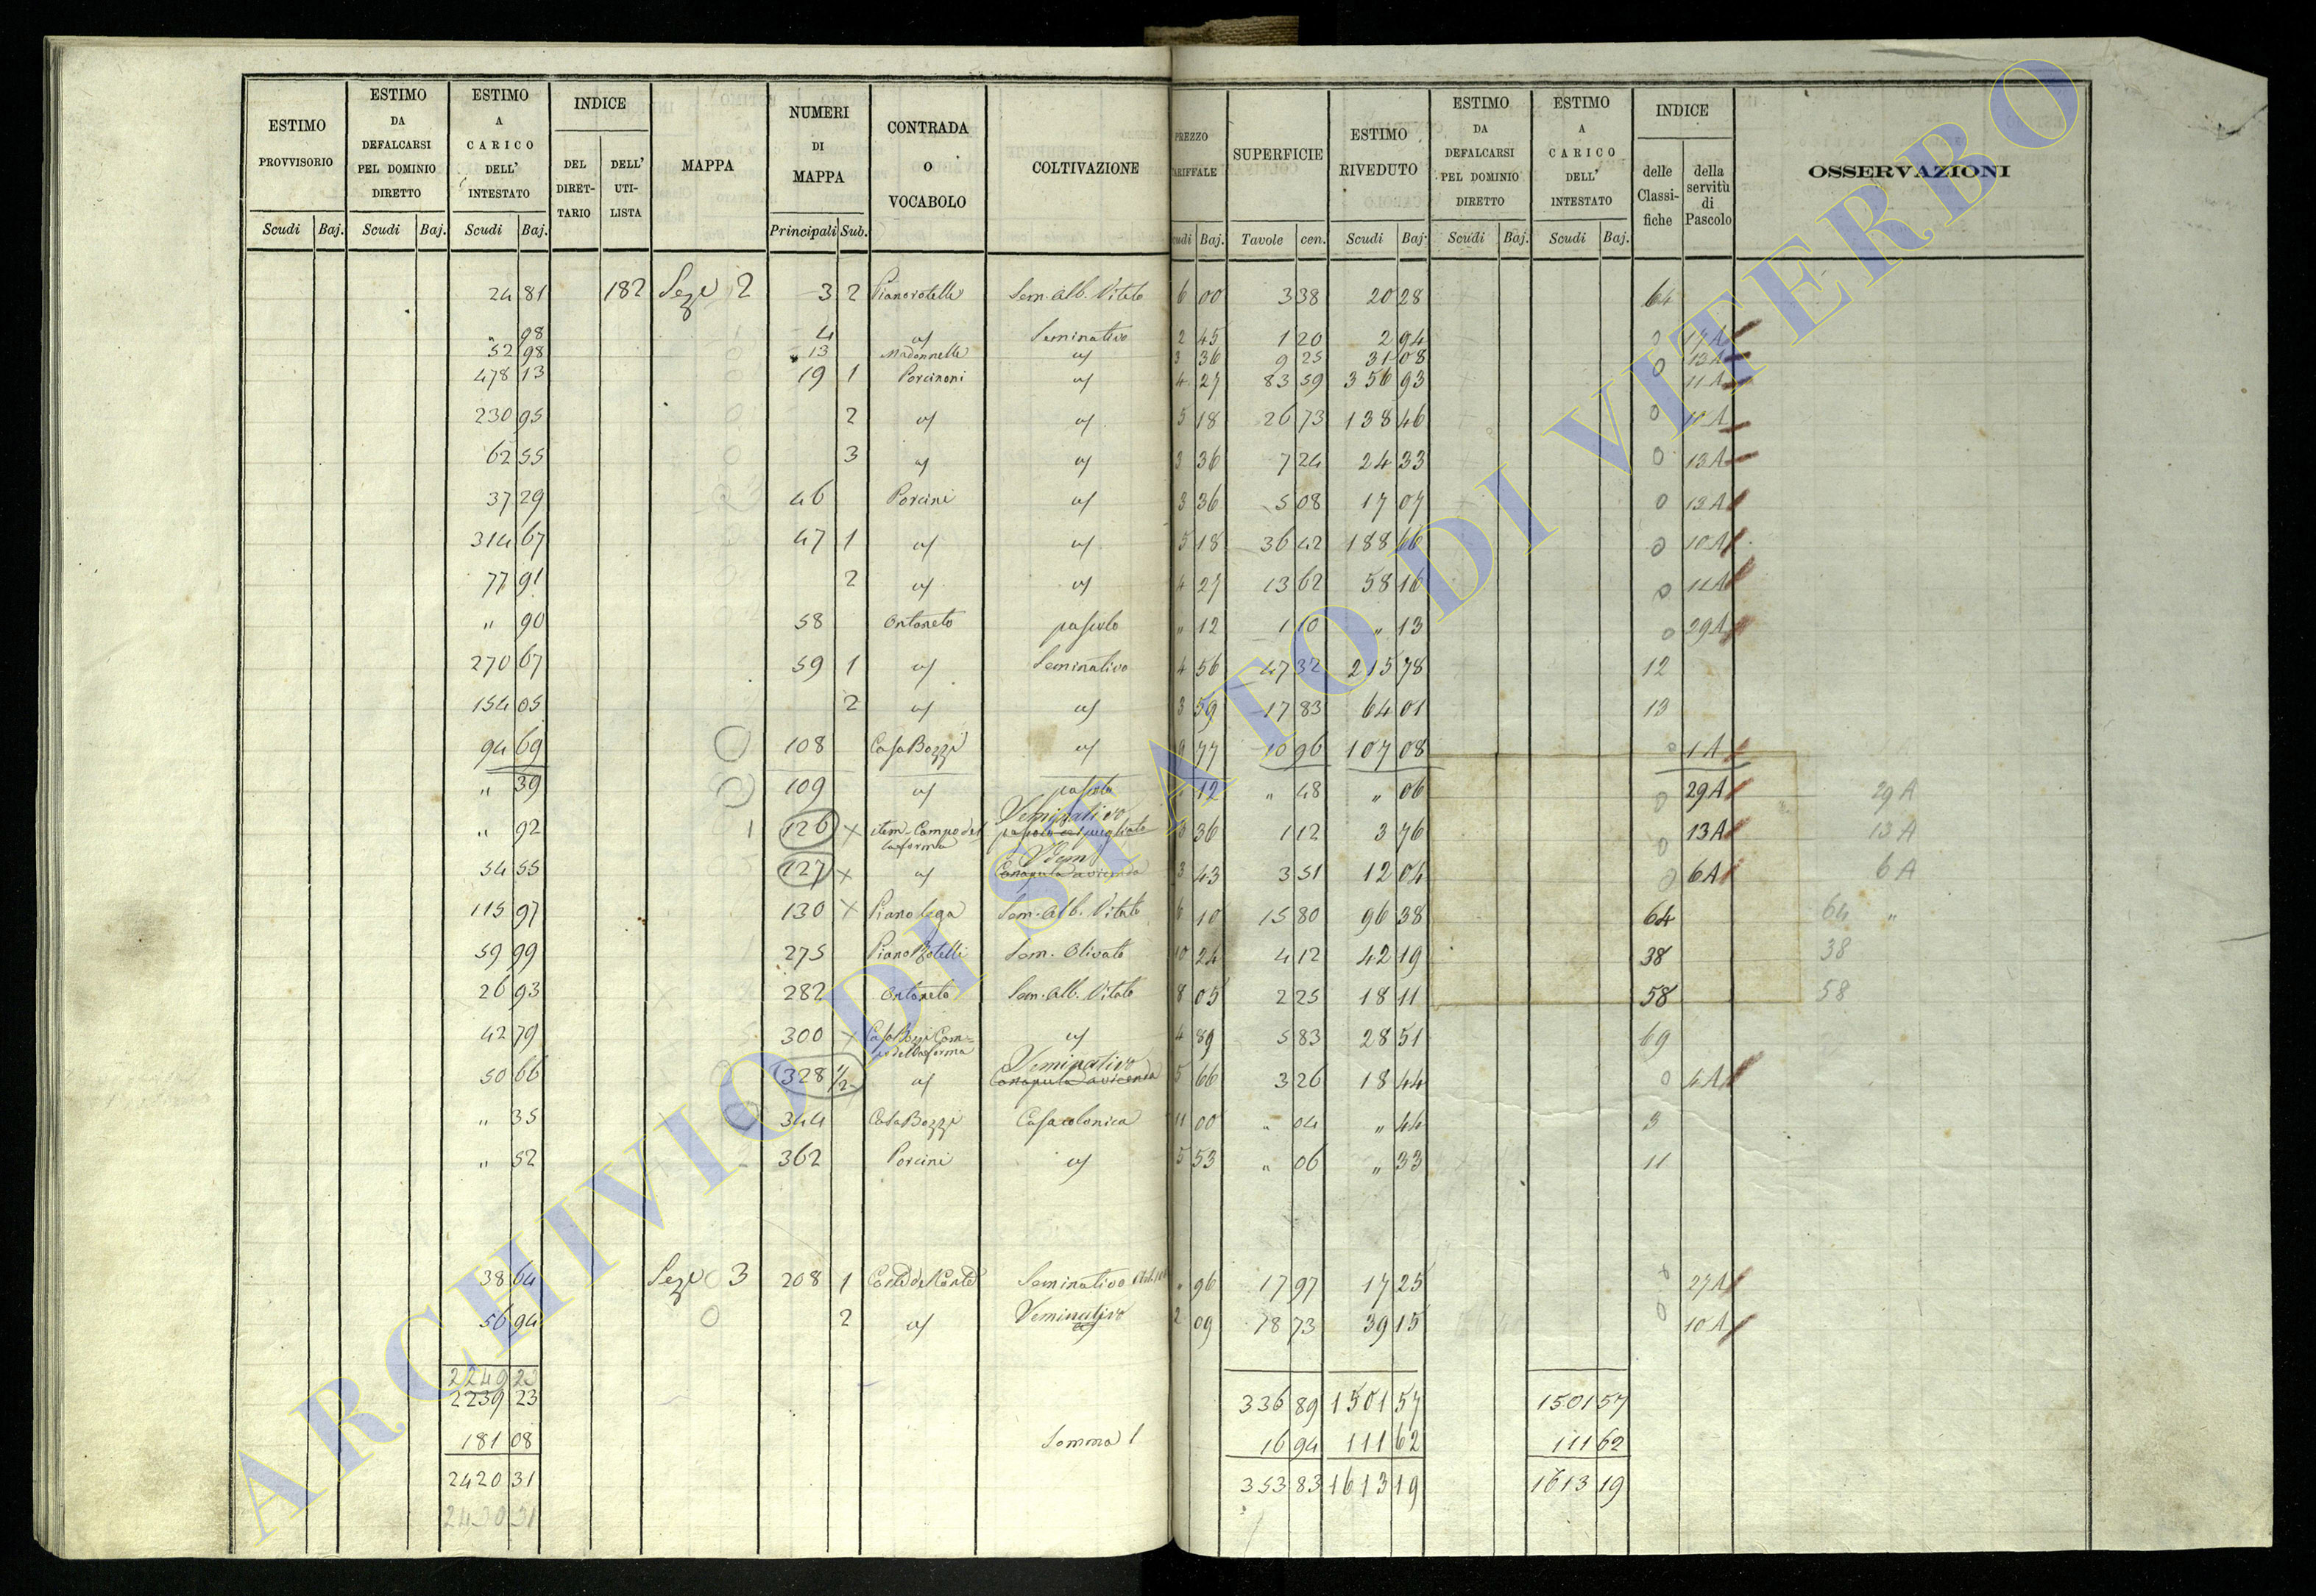 ESTIMO PROVVISORIO | ESTIMO DA DEFALCARSI PEL DOMINIO DIRETTO | ESTIMO A CARICO DELL' INTESTATO | INDICE DEL DIRET-TARIO | DELL' UTI-LISTA | MAPPA | NUMERI DI MAPPA | CONTRADA O VOCABOLO | COLTIVAZIONE | PREZZO TARIFFALE | SUPERFICIE | ESTIMO RIVEDUTO | ESTIMO DA DEFALCARSI PEL DOMINIO DIRETTO | ESTIMO A CARICO DELL' INTESTATO | INDICE delle Classi-fiche | della servitù di Pascolo | OSSERVAZIONI
Scudi Baj. Scudi Baj. Scudi Baj. Principali Sub. Baj. Tavole cen. Scudi Baj. Scudi Baj. Scudi Baj.
24 81 182 Sez. 2 3 2 Pianorotelli Sem. Alb. Vitato 6 00 3 38 20 28 64
" 98 4 Seminativo 2 45 1 20 2 94 0 17 A
52 98 13 Madonnelle 3 36 9 25 31 08 0 13 A
478 13 19 1 Porcinoni 4 27 83 59 356 93 11 A
230 95 2 5 18 26 73 138 46 0 10 A
62 55 3 3 36 7 24 24 33 0 13 A
37 29 46 Porcini 3 36 5 08 17 07 0 13 A
314 67 47 1 5 18 36 42 188 66 0 10 A
77 91 2 4 27 13 62 58 16 0 11 A
" 90 58 Ontaneto pascolo " 12 1 10 " 13 0 29 A
270 67 59 1 Seminativo 4 56 47 32 215 78 12
154 05 2 3 59 17 83 64 01 13
94 69 108 Casa Bozzi 9 77 10 96 107 08 0 1 A
" 39 109 pascolo 12 " 48 " 06 0 29 A 29 A
" 92 1 126 x item-Campo del Seminativo 3 36 1 12 3 76 0 13 A 13 A
54 55 127 x Idem Canapula a vicenda 3 43 3 51 12 04 0 6 A 6 A
115 97 130 x Piano Lega Sem. Alb. Vitato 6 10 15 80 96 38 64 64 "
59 99 275 Piano Rotelli Sem. Olivato 10 24 4 12 42 19 38 38
26 93 282 Ontaneto Sem. Alb. Vitato 8 05 2 25 18 11 58 58
42 79 300 x Casa Bozzi Cam- 4 89 5 83 28 51 69
50 66 328 1/2 Seminativo Canapula a vicenda 5 66 3 26 18 44 0 4 A
" 35 344 Casa Bozzi Casa colonica 11 00 " 04 " 44 3
" 52 362 Porcini 5 53 " 06 " 33 11
38 64 Sez. 3 208 1 Seminativo " 96 17 97 17 25 27 A
56 94 0 2 Seminativo 2 09 18 73 39 15 0 10 A
2249 23
2239 23 336 89 1501 57 1501 57
181 08 Somma l 16 94 111 62 111 62
2420 31 353 83 1613 19 1613 19
2430 31
ARCHIVIO DI STATO DI VITERBO